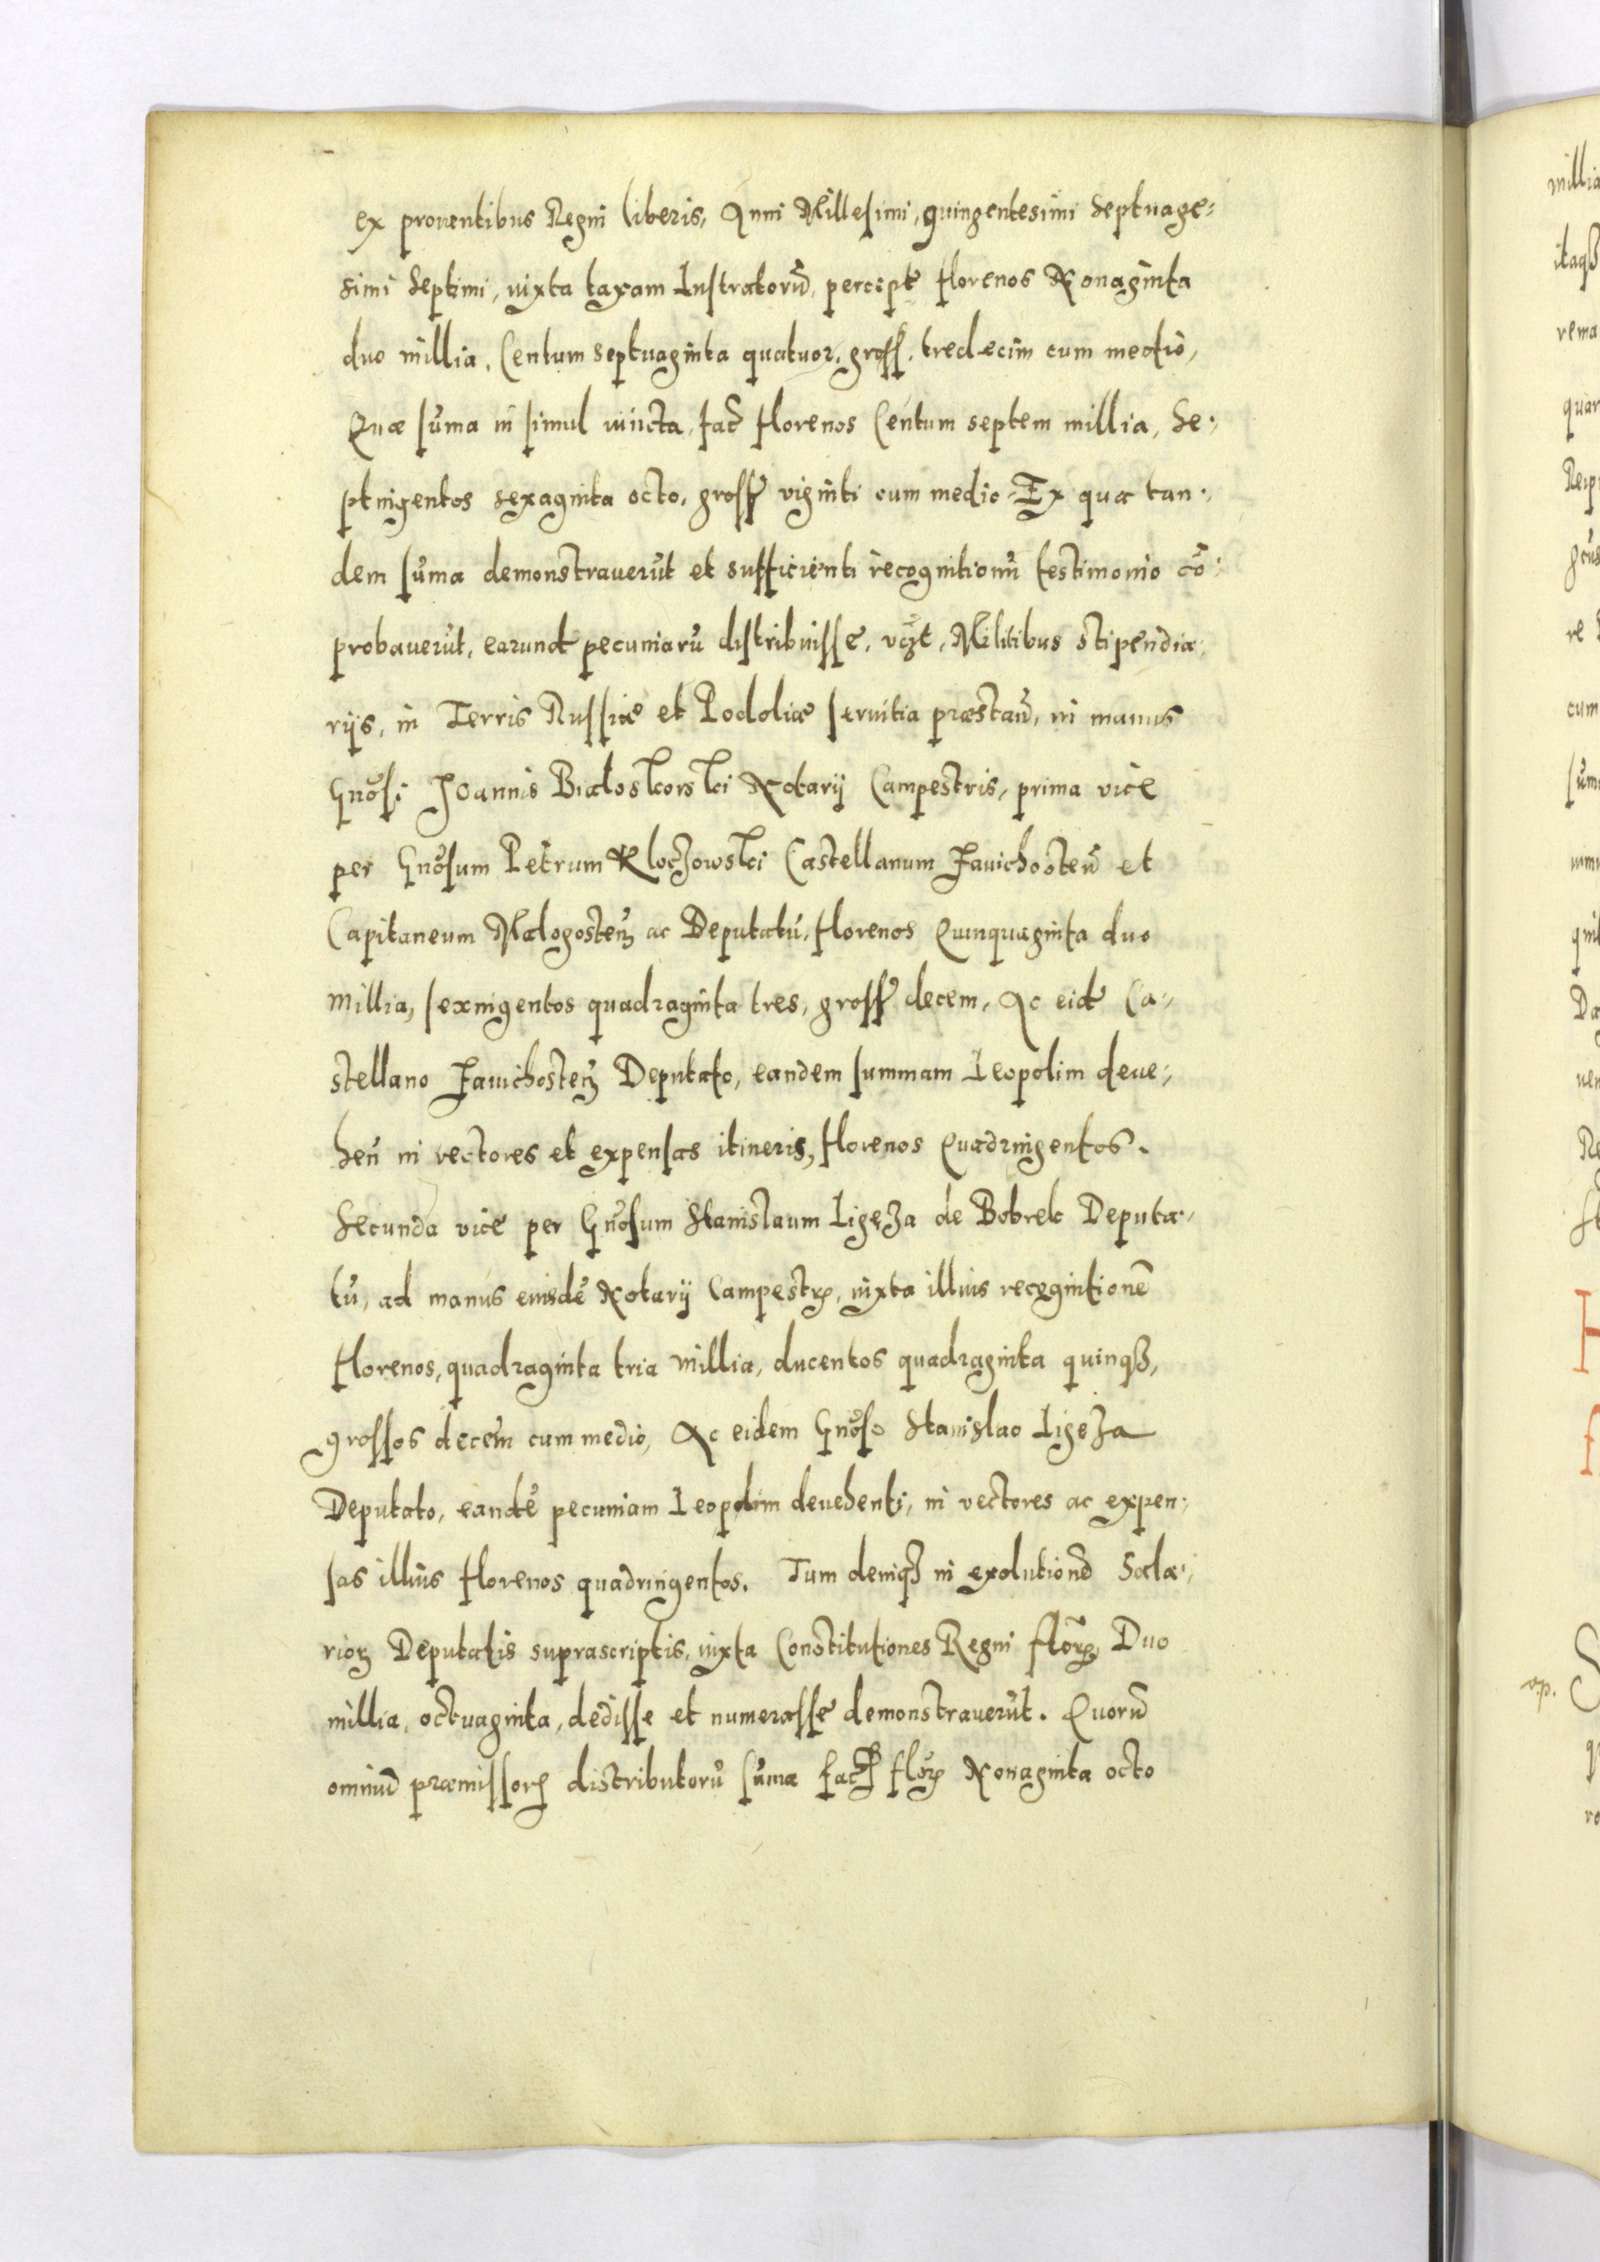 ex prouentibus Regni liberis, Anni Millesimi, quingentesimi Septuage-
simi Septimi, iuxta taxam Lustratorũ, percept florenos Nonaginta
duo millia, Centum septuaginta quatuor, gross. tredecim cum medio,
Quæ sũma in simul iuncta, facĩ florenos Centum septem millia, Se-
ptingentos sexaginta octo, gross viginti cum medio. Ex qua tan-
dem sũma demonstrauerũt et sufficienti recognitionũ testimonio cõ-
probauerũt, earund pecuniarũ distribuisse, vczt, Militibus stipendia-
rijs, in Terris Russiæ et Podoliæ seruitia præstañ, in manus
Gñosi Joannis Białoskorski Notarij Campestris, prima vice
per Gñosum Petrum Kloczowski Castellanum Zauichosteñ et
Capitaneum Malogosteñ ac Deputatũ, florenos Quinquaginta duo
millia, sexingentos quadraginta tres, gross decem, Ac eid Ca-
stellano Zauichosteñ Deputato, eandem summam Leopolim deue-
heñ in vectores et expensas itineris, florenos Quadringentos.
Secunda vice per Gñosum Stanislaum Ligęza de Bobrek Deputa-
tũ, ad manus eiusdẽ Notarij Campestr, iuxta illius recognitionẽ
florenos, quadraginta tria millia, ducentos quadraginta quinqꝫ,
grossos decem cum medio, Ac eidem Gñoso Stanislao Ligęza
Deputato, eandẽ pecuniam Leopolim deuehenti, in vectores ac expen-
sas illius florenos quadringentos. Tum deniqꝫ in exolutionẽ Sala-
rioꝝ Deputatis suprascriptis, iuxta Constitutiones Regni floꝝ, Duo
millia, octuaginta, dedisse et numerasse demonstrauerũt. Quorũ
omniũ præmissoꝝ distributorũ sũma facĩ floꝝ Nonaginta octo